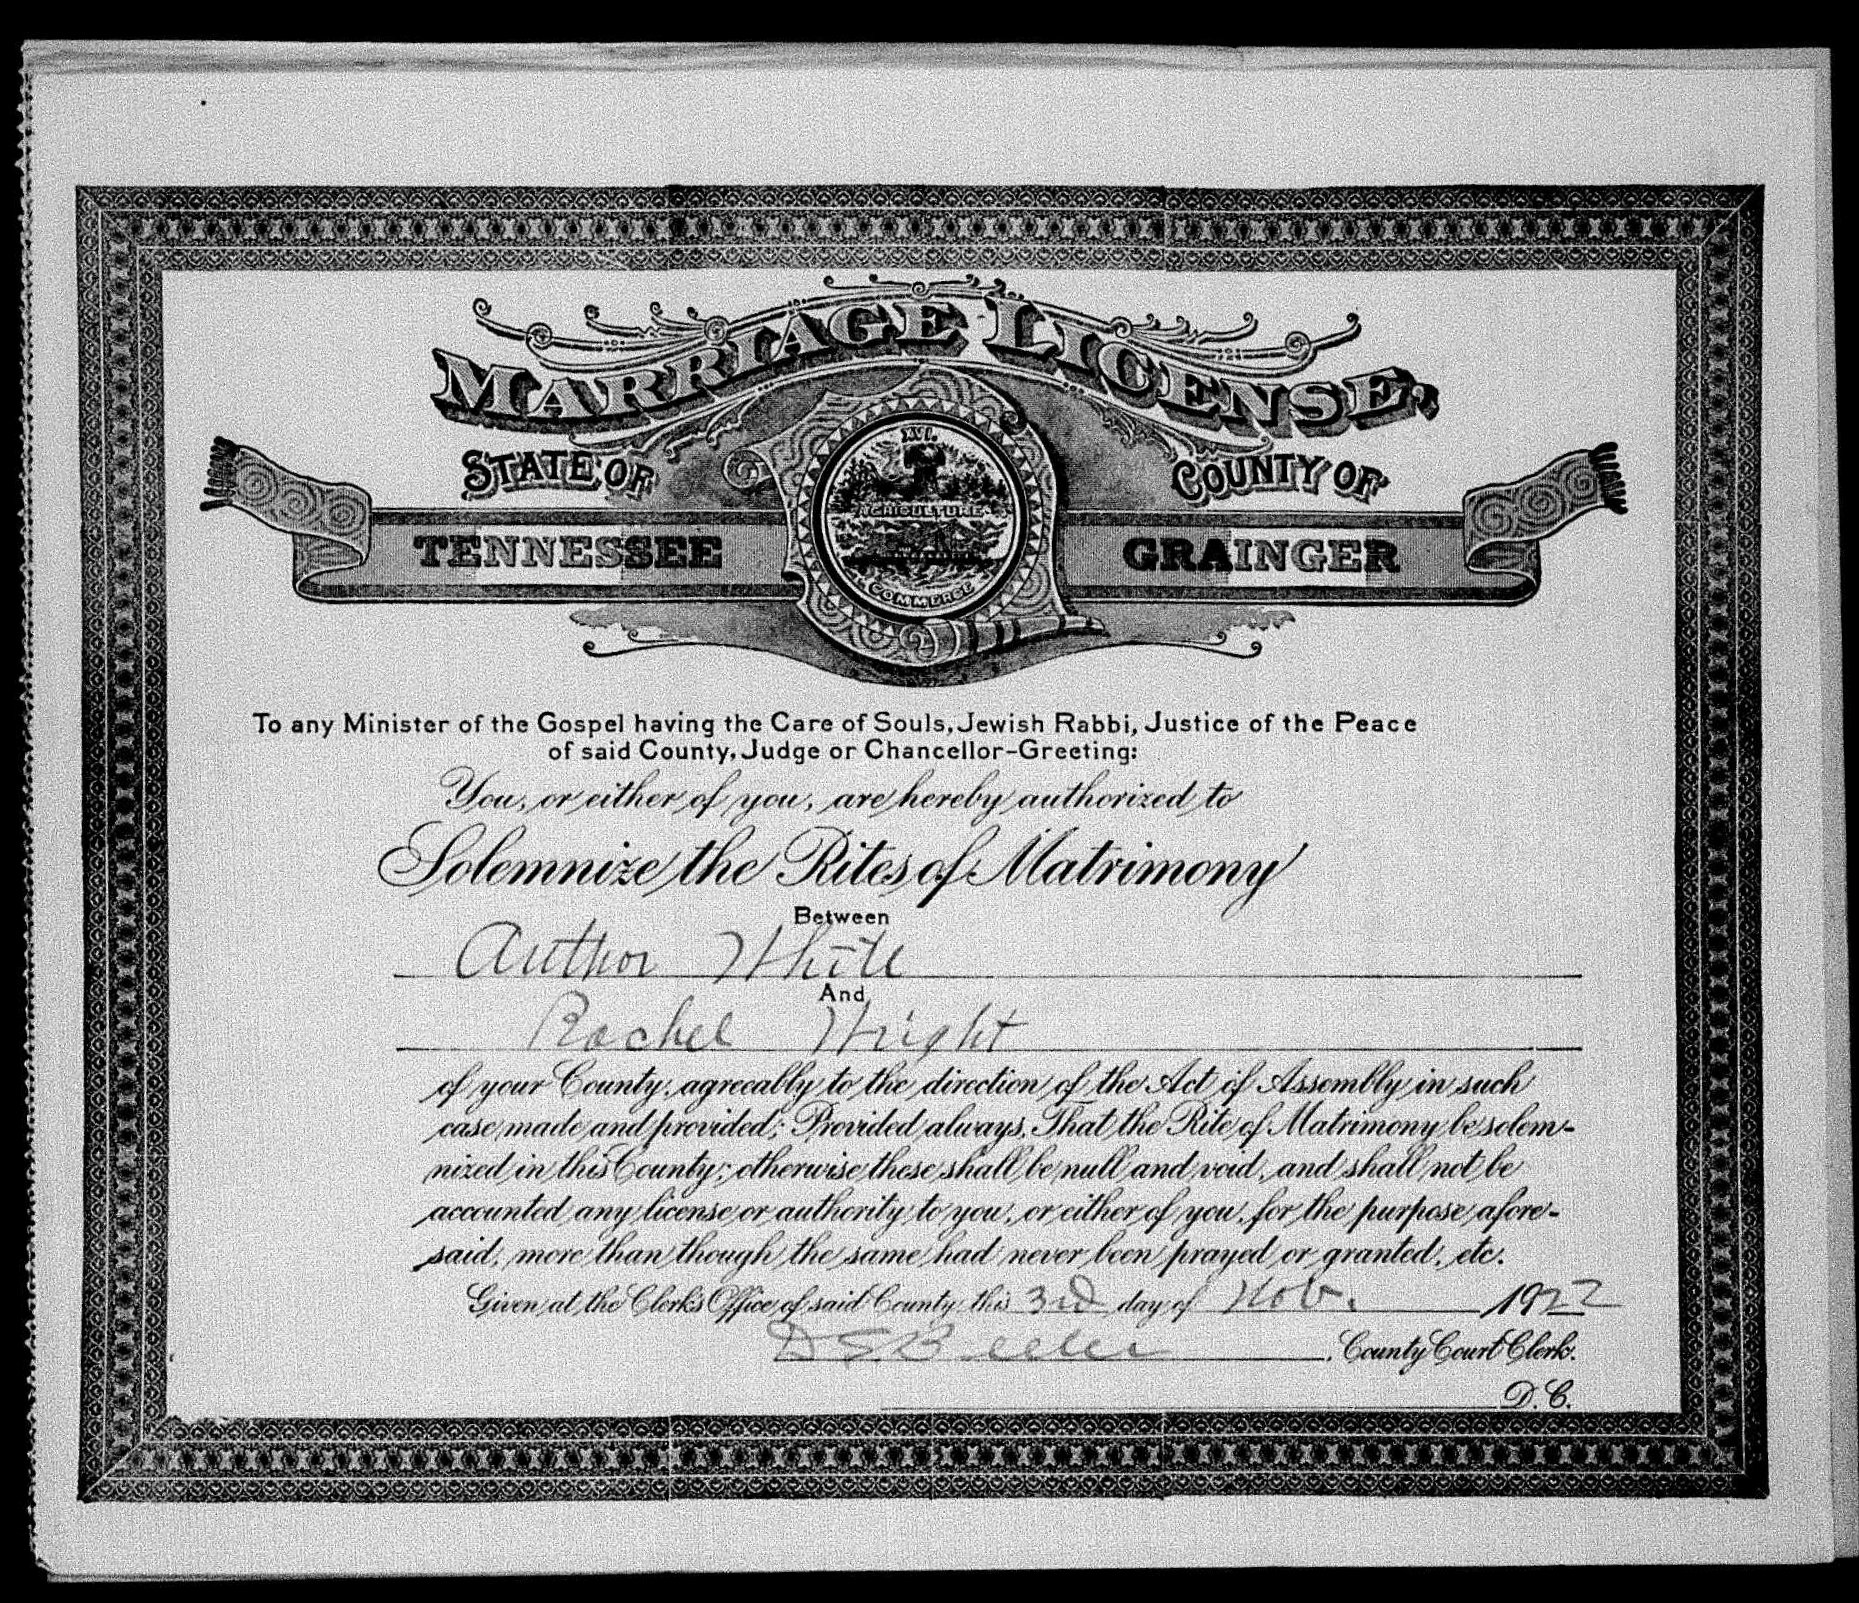 MARRIAGE LICENSE.
STATE OF
COUNTY OF
XVI.
AGRICULTURE
TENNESSEE
GRAINGER
COMMERCE
To any Minister of the Gospel having the Care of Souls, Jewish Rabbi, Justice of the Peace
of said County, Judge or Chancellor-Greeting:
You, or either of you, are hereby authorized to
Solemnize the Rites of Matrimony
Between
Author White
And
Rachel Wright
of your County, agreeably to the direction of the Act of Assembly in such
case made and provided; Provided always, That the Rite of Matrimony be solem-
nized in this County; otherwise these shall be null and void, and shall not be
accounted any license or authority to you, or either of you, for the purpose afore-
said, more than though the same had never been prayed or granted, etc.
Given at the Clerks Office of said County, this 3rd day of Nov. 1922
D S Beeler, County Court Clerk.
D. C.